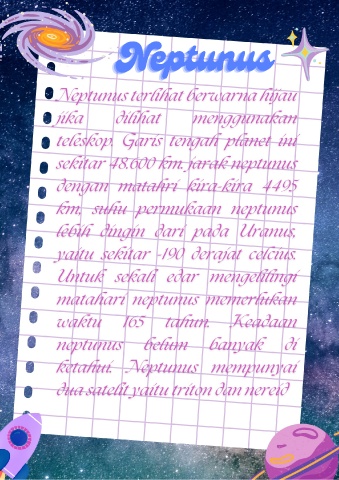 Neptunus
Neptunus terlihat berwarna hijau
jika dilihat menggunakan
teleskop. Garis tengah planet ini
sekitar 48.600 km. jarak neptunus
dengan matahri kira-kira 4495
km, suhu permukaan neptunus
lebih dingin dari pada Uranus,
yaitu sekitar -190 derajat celcius.
Untuk sekali edar mengelilingi
matahari neptunus memerlukan
waktu 165 tahun. Keadaan
neptunus belum banyak di
ketahui. Neptunus mempunyai
dua satelit yaitu triton dan nereid